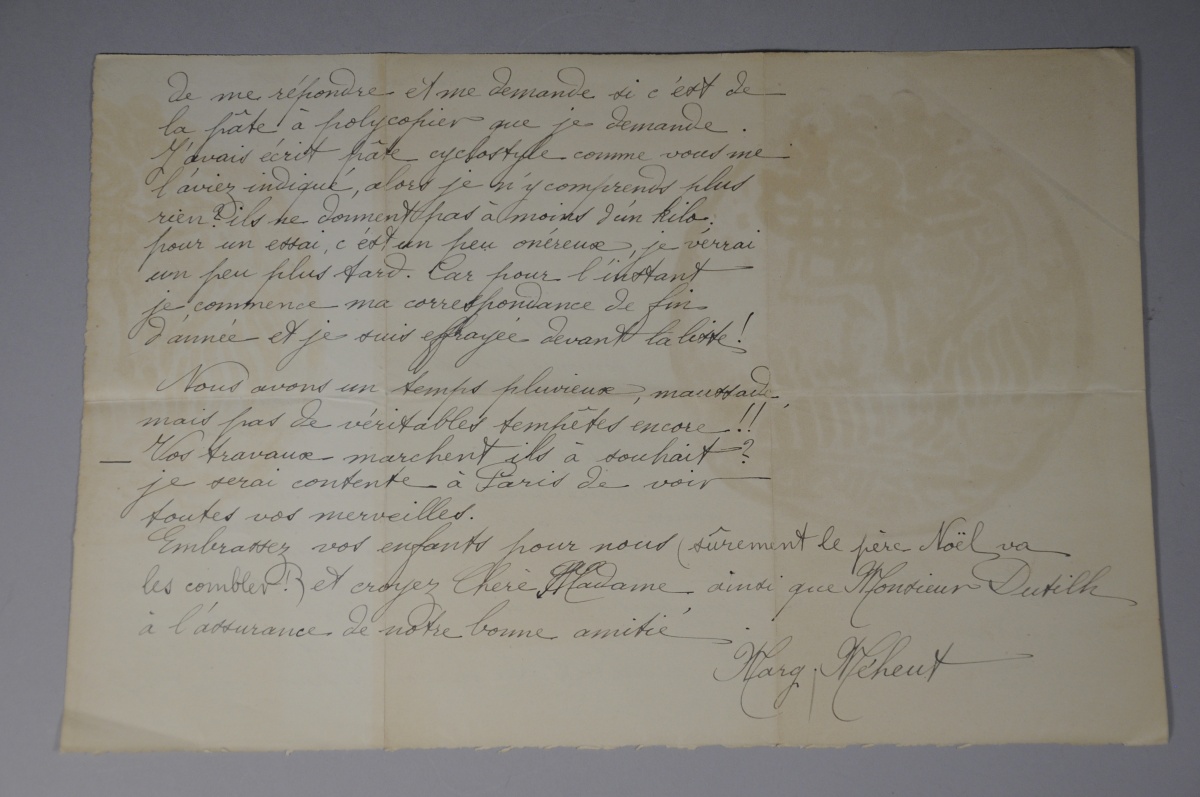 de me répondre et me demande si c'est de
la pâte à polycopier que je demande.
J'avais écrit pâte cyclostyle comme vous me
l'aviez indiqué, alors je n'y comprends plus
rien? ils ne donnent pas à moins d'un kilo.
pour un essai, c'est un peu onéreux, je verrai
un peu plus tard. Car pour l'instant
je commence ma correspondance de fin
d'année et je suis effrayée devant la liste!
Nous avons un temps pluvieux, maussade
mais pas de véritables tempêtes encore!!
— Vos travaux marchent ils à souhait?
je serai contente à Paris de voir
toutes vos merveilles.
Embrassez vos enfants pour nous (sûrement le père Noël va
les combler!) et croyez Chère Madame ainsi que Monsieur Dutilh
à l'assurance de notre bonne amitié.
Marg. Méheut